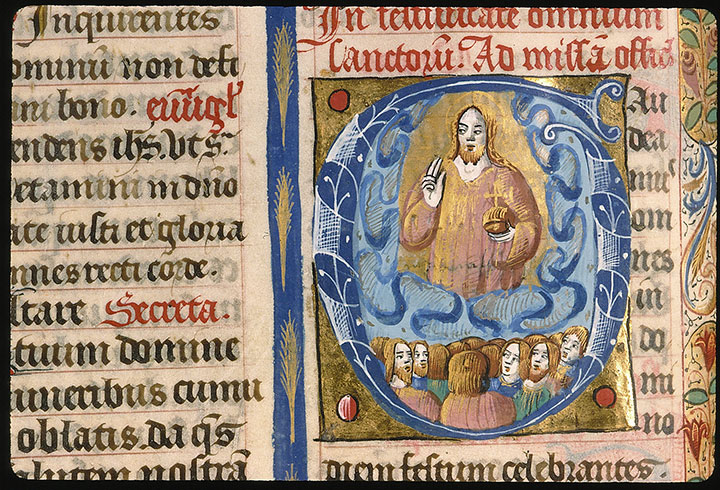 Inquirentes
omnū non defi
ni bono. euāgl'
endens ihs. vt s.
petantini in dño
ate iusti et gloria
nnes recti corde.
ltare Secreta.
tuum domine
uneribus cumu
oblatis. da qs
alutem nostrā
In festiuitate omnium
sanctorū. Ad missā offis
Gau
dea
mus
om
nes
in
do
mi
no
diem festum celebrantes.